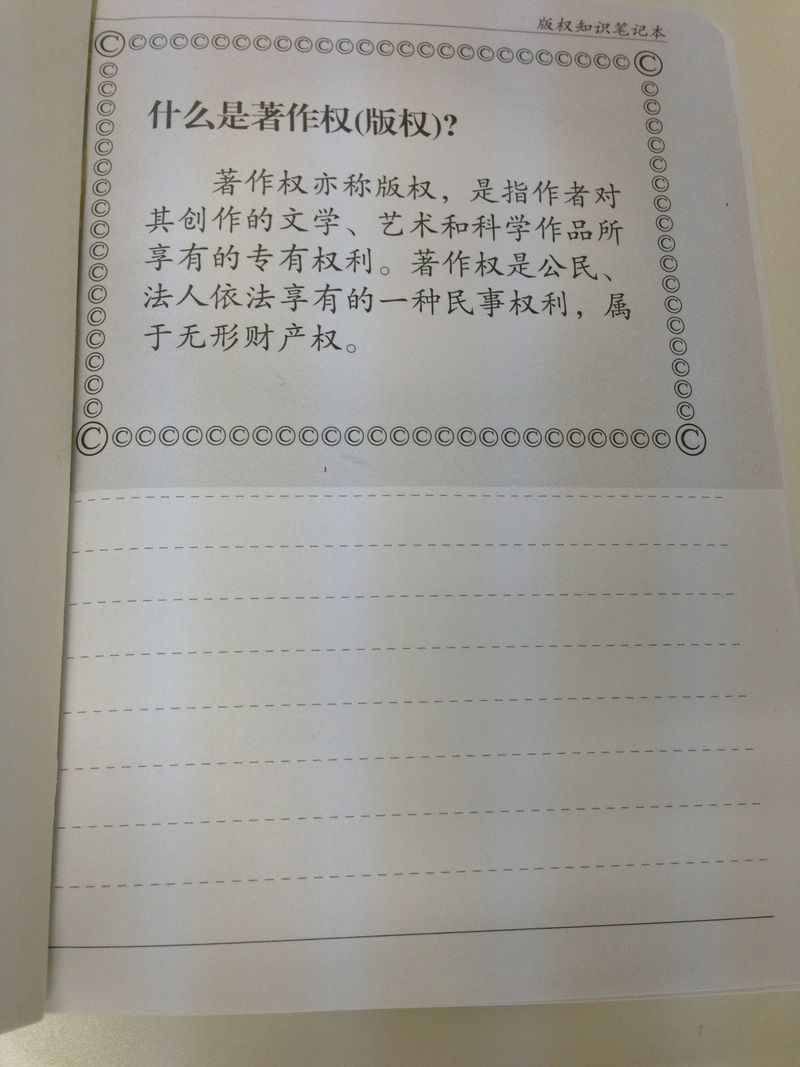 版权知识笔记本
什么是著作权(版权)?
著作权亦称版权，是指作者对
其创作的文学、艺术和科学作品所
享有的专有权利。著作权是公民、
法人依法享有的一种民事权利，属
于无形财产权。